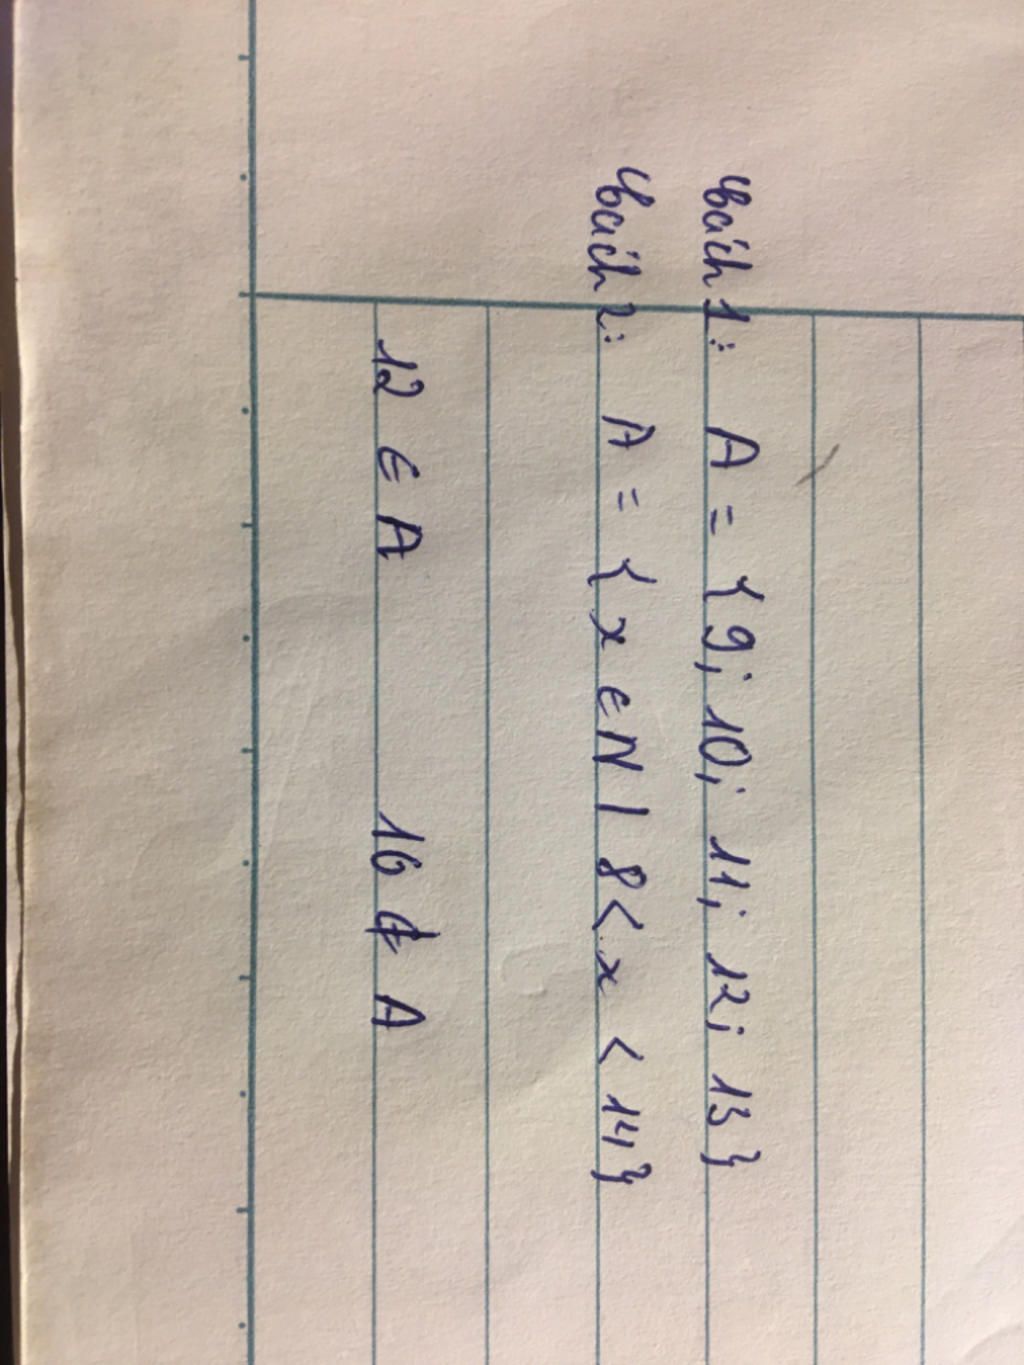 Cách 1: A = {9; 10; 11; 12; 13}
Cách 2: A = {x ∈ N | 8 < x < 14}
12 ∈ A 16 ∉ A